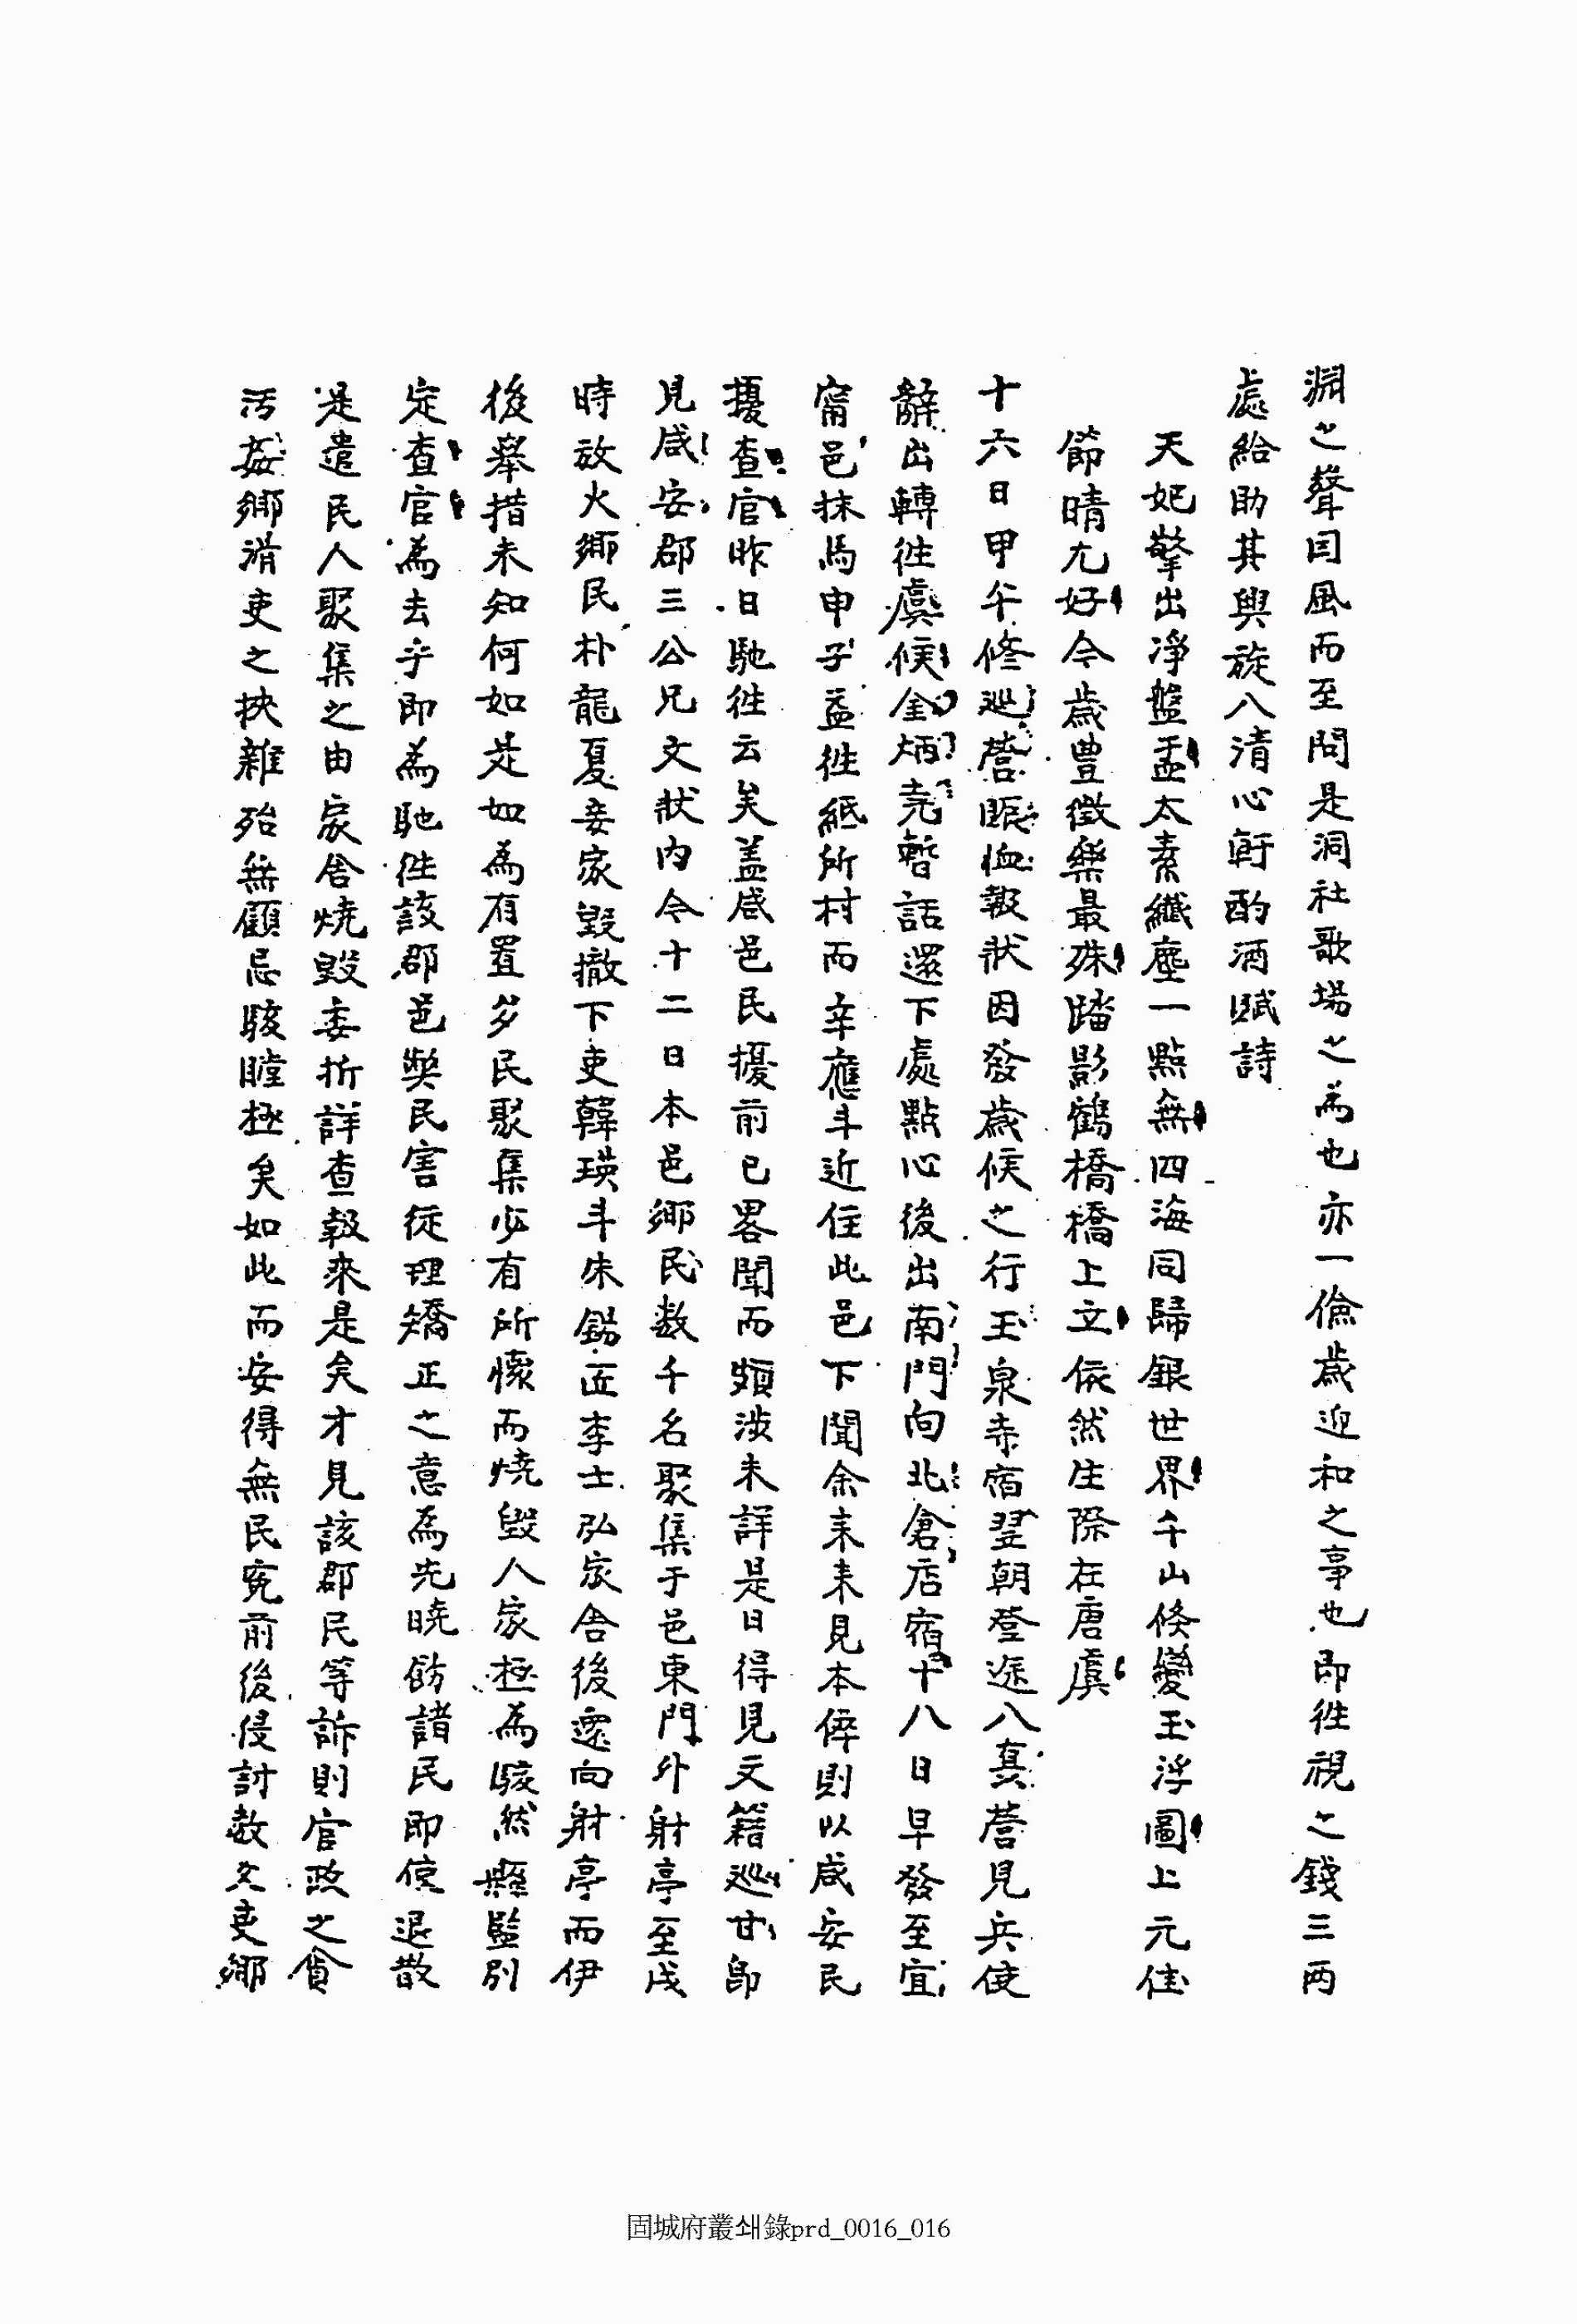 淵之聲因風而至問是洞社歌場之為也亦一儉歲迎和之事也即徃視之錢三兩
處給助其興旋入清心軒酌酒賦詩
天妃擎出淨盤盂太素纖塵一點無四海同歸銀世界千山倏變玉浮圖上元佳
節晴尤好今歲豊徵樂最殊踏影鶴橋橋上立依然生際在唐虞
十六日甲午修巡營賑恤報狀因發歲候之行玉泉寺宿翌朝登途入眞營見兵使
辭出轉徃虞候金炳堯暫話還下處點心後出南門向北倉店宿十八日早發至宜
甯邑抹馬申子益徃紙所村而辛應斗近住此邑下聞余來來見本倅則以咸安民
擾查官昨日馳徃云矣盖咸邑民擾前已畧聞而頗涉未詳是日得見文籍巡甘卽
見咸安郡三公兄文狀內今十二日本邑鄉民数千名聚集于邑東門外射亭至戌
時放火鄉民朴龍夏妾家毀撤下吏韓瑛斗朱錫匠李士弘家舍後還向射亭而伊
後舉措未知何如是如為有置多民聚集必有所懷而燒毀人家極為駭然縣監別
定查官為去乎即為馳徃該郡邑弊民害從理矯正之意為先曉飭諸民即使退散
是遣民人聚集之由家舍燒毀委折詳查報來是矣才見該郡民等訴則官政之貪
汚姦鄉猾吏之挾雜殆無顧忌駭瞠極矣如此而安得無民寃前後侵討教文吏鄉
固城府叢쇄錄prd_0016_016